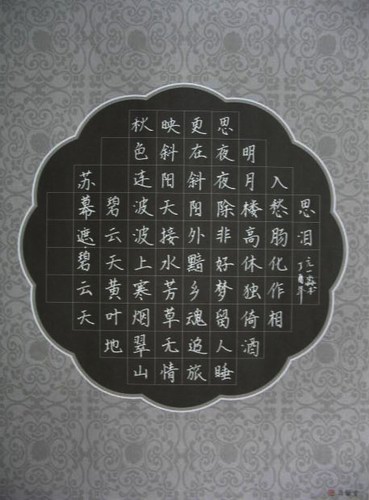 苏幕遮碧云天
碧云天黄叶地
秋色连波波上寒烟翠山
映斜阳天接水芳草无情
更在斜阳外黯乡魂追旅
思夜夜除非好梦留人睡
明月楼高休独倚酒
入愁肠化作相
思泪